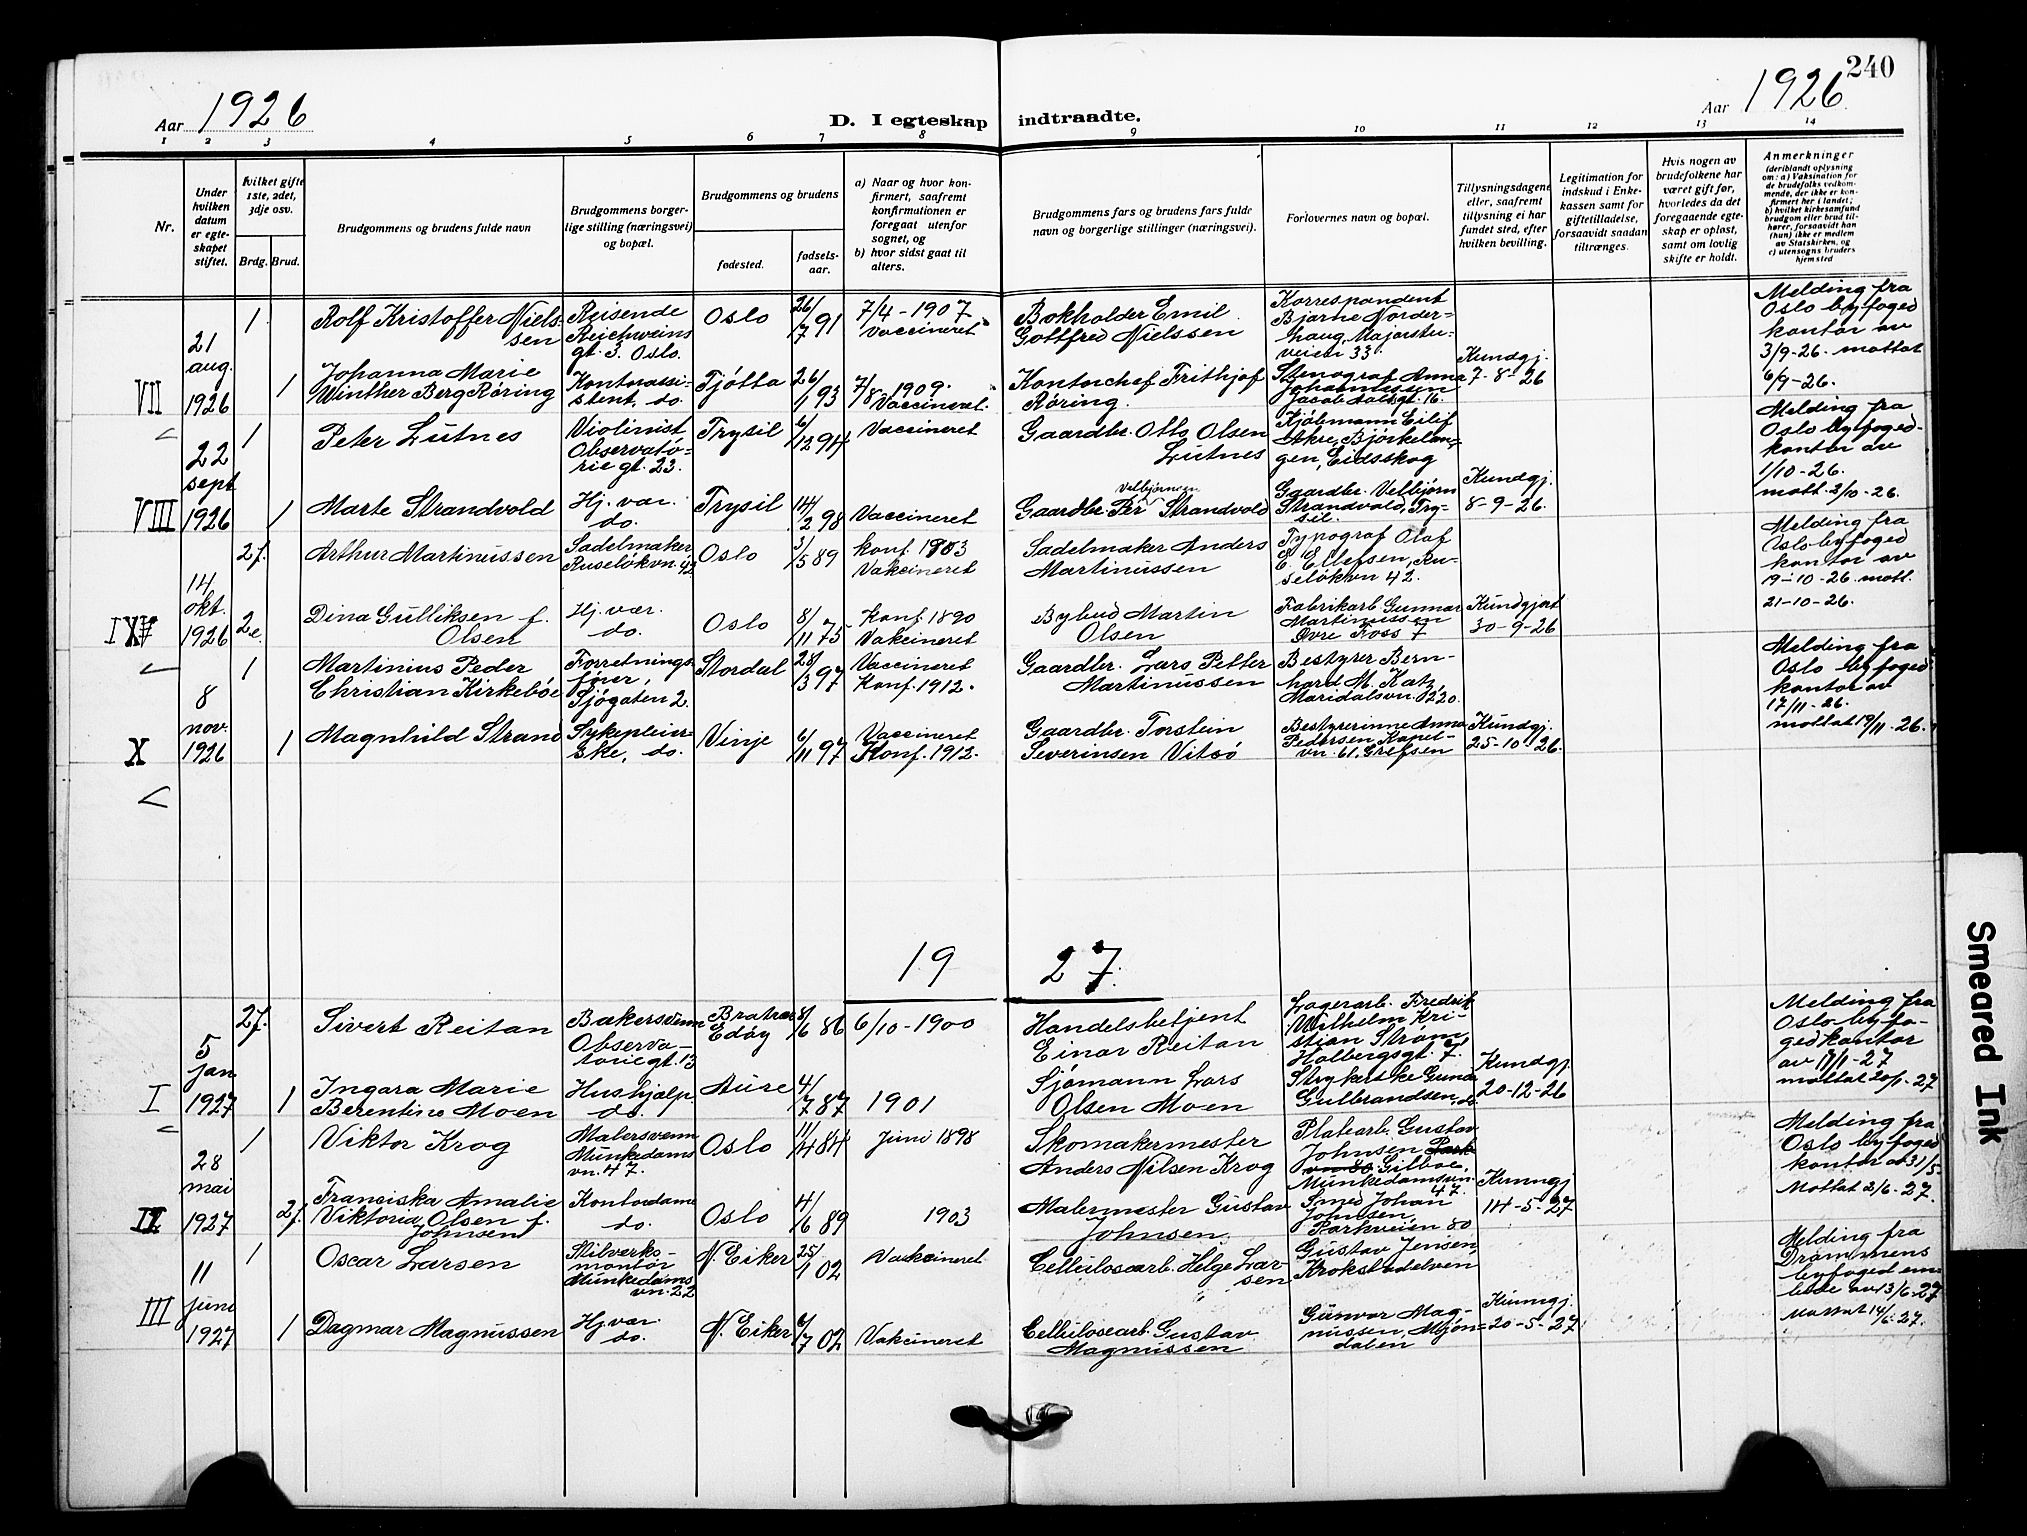 240
Aar 1926
D. I egteskap indtraadte.
Aar 1926
1 2 3 4 5 6 7 8 9 10 11 12 13 14
Nr.
Under hvilken datum er egteskapet stiftet.
hvilket gifte 1ste, 2det, 3dje osv.
Brdg. Brud.
Brudgommens og brudens fulde navn
Brudgommens borgerlige stilling (næringsvei) og bopæl.
Brudgommens og brudens
fødested.
fødselsaar.
a) Naar og hvor konfirmert, saafremt konfirmationen er foregaat utenfor sognet, og
b) hvor sidst gaat til alters.
Brudgommens fars og brudens fars fulde navn og borgerlige stillinger (næringsvei).
Forlovernes navn og bopæl.
Tillysningsdagene eller, saafremt tillysning ei har fundet sted, efter hvilken bevilling.
Legitimation for indskud i Enkekassen samt for giftetilladelse, forsaavidt saadan tiltrænges.
Hvis nogen av brudefolkene har været gift før, hvorledes da det foregaaende egteskap er opløst, samt om lovlig skifte er holdt.
Anmerkninger
(deriblandt oplysning om: a) Vaksination for de brudefolks vedkommende, der ikke er konfirmert her i landet;
b) hvilket kirkesamfund brudgom eller brud tilhører, forsaavidt han (hun) ikke er medlem av Statskirken, og
c) utensogns bruders hjemsted
VII
21
aug.
1926
1
Rolf Kristoffer Nielssen
Reisende
Reichweins
gt. 3. Oslo.
Oslo
26/7 91
7/4 - 1907
Vaccineret
Bokholder Emil
Gottfred Nielssen
Korrespondent
Bjarne Norderhaug, Majorstuveien 33.
Melding fra
Oslo byfoged
kontor av
3/9-26. mottat
6/9-26.
1
Johanna Marie
Winther Berg Röring
Kontorassistent, do.
Tjötta
26/1 93
7/8 1909.
Vaccineret.
Kontorchef Frithjof
Röring.
Stenograf Anna
Johannessen
Jacob Aalls gt. 16.
Kundgj.
7-8-26
VIII
22
sept
1926
1
Peter Lutnes
Violinist
Observatorie gt. 23.
Trysil
6/12 94
Vaccineret
Gaardbr. Otto Olsen
Lutnes
Kjöbmann Eilif
Akre, Björkelangen, Eidsskog
Melding fra
Oslo byfogedkontor av
1/10-26.
mott. 2/10-26.
1
Marte Strandvold
Hj. vær.
do.
Trysil
14/2 98
Vaccineret
Velbjörnsen
Gaardbr. Per Strandvold
Gaardbr. Velbjörn
Strandvold, Trysil.
Kundgj.
8-9-26.
IX
14
okt.
1926
2f.
Arthur Martinussen
Sadelmaker
Ruselökvn. 42
Oslo
3/5 89
Konf. 1903
Vakcineret
Sadelmaker Anders
Martinussen
Typograf Olaf
E. Ellefsen, Ruselökvn 42.
Melding fra
Oslo byfoged
kontor av
19-10-26. mott.
21-10-26.
2e.
Dina Gulliksen f.
Olsen
Hj. vær.
do.
Oslo
8/11 75
Konf. 1890
Vakcineret
Bybud Martin
Olsen
Fabrikarb. Gunnar
Martinussen
Övre Foss 7
Kundgjort
30-9-26
X
8
nov.
1926
1
Martinius Peder
Christian Kirkeböe
Forretningsförer,
Sjögaten 2.
Stordal
28/3 97
Vaccineret
Konf. 1912.
Gaardbr. Lars Petter
Martinussen
Bestyrer Bernhard M. Katz,
Maridalsvn. 220.
Melding fra
Oslo byfoged
kontor av
17/11-26.
mottat 19/11-26.
1
Magnhild Strand
Sykepleierske, do.
Vinje
6/11 97
Vaccineret
Konf. 1912.
Gaardbr. Torstein
Severinsen Vitsö
Bestyrerinne Anna
Pedersen Kapelvn. 61, Grefsen
Kundgj.
25-10-26.
19 27.
I
5
jan
1927
2f.
Sivert Reitan
Bakersvenn
Observatorie gt. 13
Edöy
8/6 86
6/10-1900
Handelsbetjent
Einar Reitan
Lagerarb. Fredrik
Wilhelm Kristian Ström
Holbergsgt. 7.
Melding fra
Oslo byfogedkontor
av 17/1-27
mottat 20/1-27
1
Ingara Marie
Berentine Moen
Hushjælp
do.
Aure
4/7 87
1901
Sjömann Lars
Olsen Moen
Strykerske Gunda
Gulbrandsen, do.
Kundgj.
20-12-26
II
28
mai
1927
1
Viktor Krog
Malersvenn
Munkedams
vn. 47.
Oslo
11/4 84
Juni 1898
Skomakermester
Anders Nilsen Krog
Platearb. Gustav
Johnsen Parkvn 80 Gilboe,
Munkedamsvn.
47.
Melding fra
Oslo byfoged
kontor av 31/5
Mottat 2/6-27.
2f.
Franciska Amalie
Viktoria Olsen f.
Johnsen
Kontordame
do.
Oslo
4/6 89
1903
Malermester Gustav
Johnsen.
Smed Johan
Johnsen,
Parkveien 80
Kunngj
14-5-27
III
11
juni
1927
1
Oscar Larsen
Stilverksmontör
Munkedams
vn. 22
N. Eiker
25/1 02
Vakcineret
Cellulosearb. Helge Larsen
Gustav Jensen
Krokstadelven
Melding fra
Drammens
byfoged embede av 13/6-27
Mottat 14/6-27.
1
Dagmar Magnussen
Hj. vær.
do.
N. Eiker
6/7 02
Vakcineret
Cellulosearb. Gustav
Magnussen
Gunvor Magnussen, Mjöndalen
Kunngj.
20-5-27
Smeared Ink